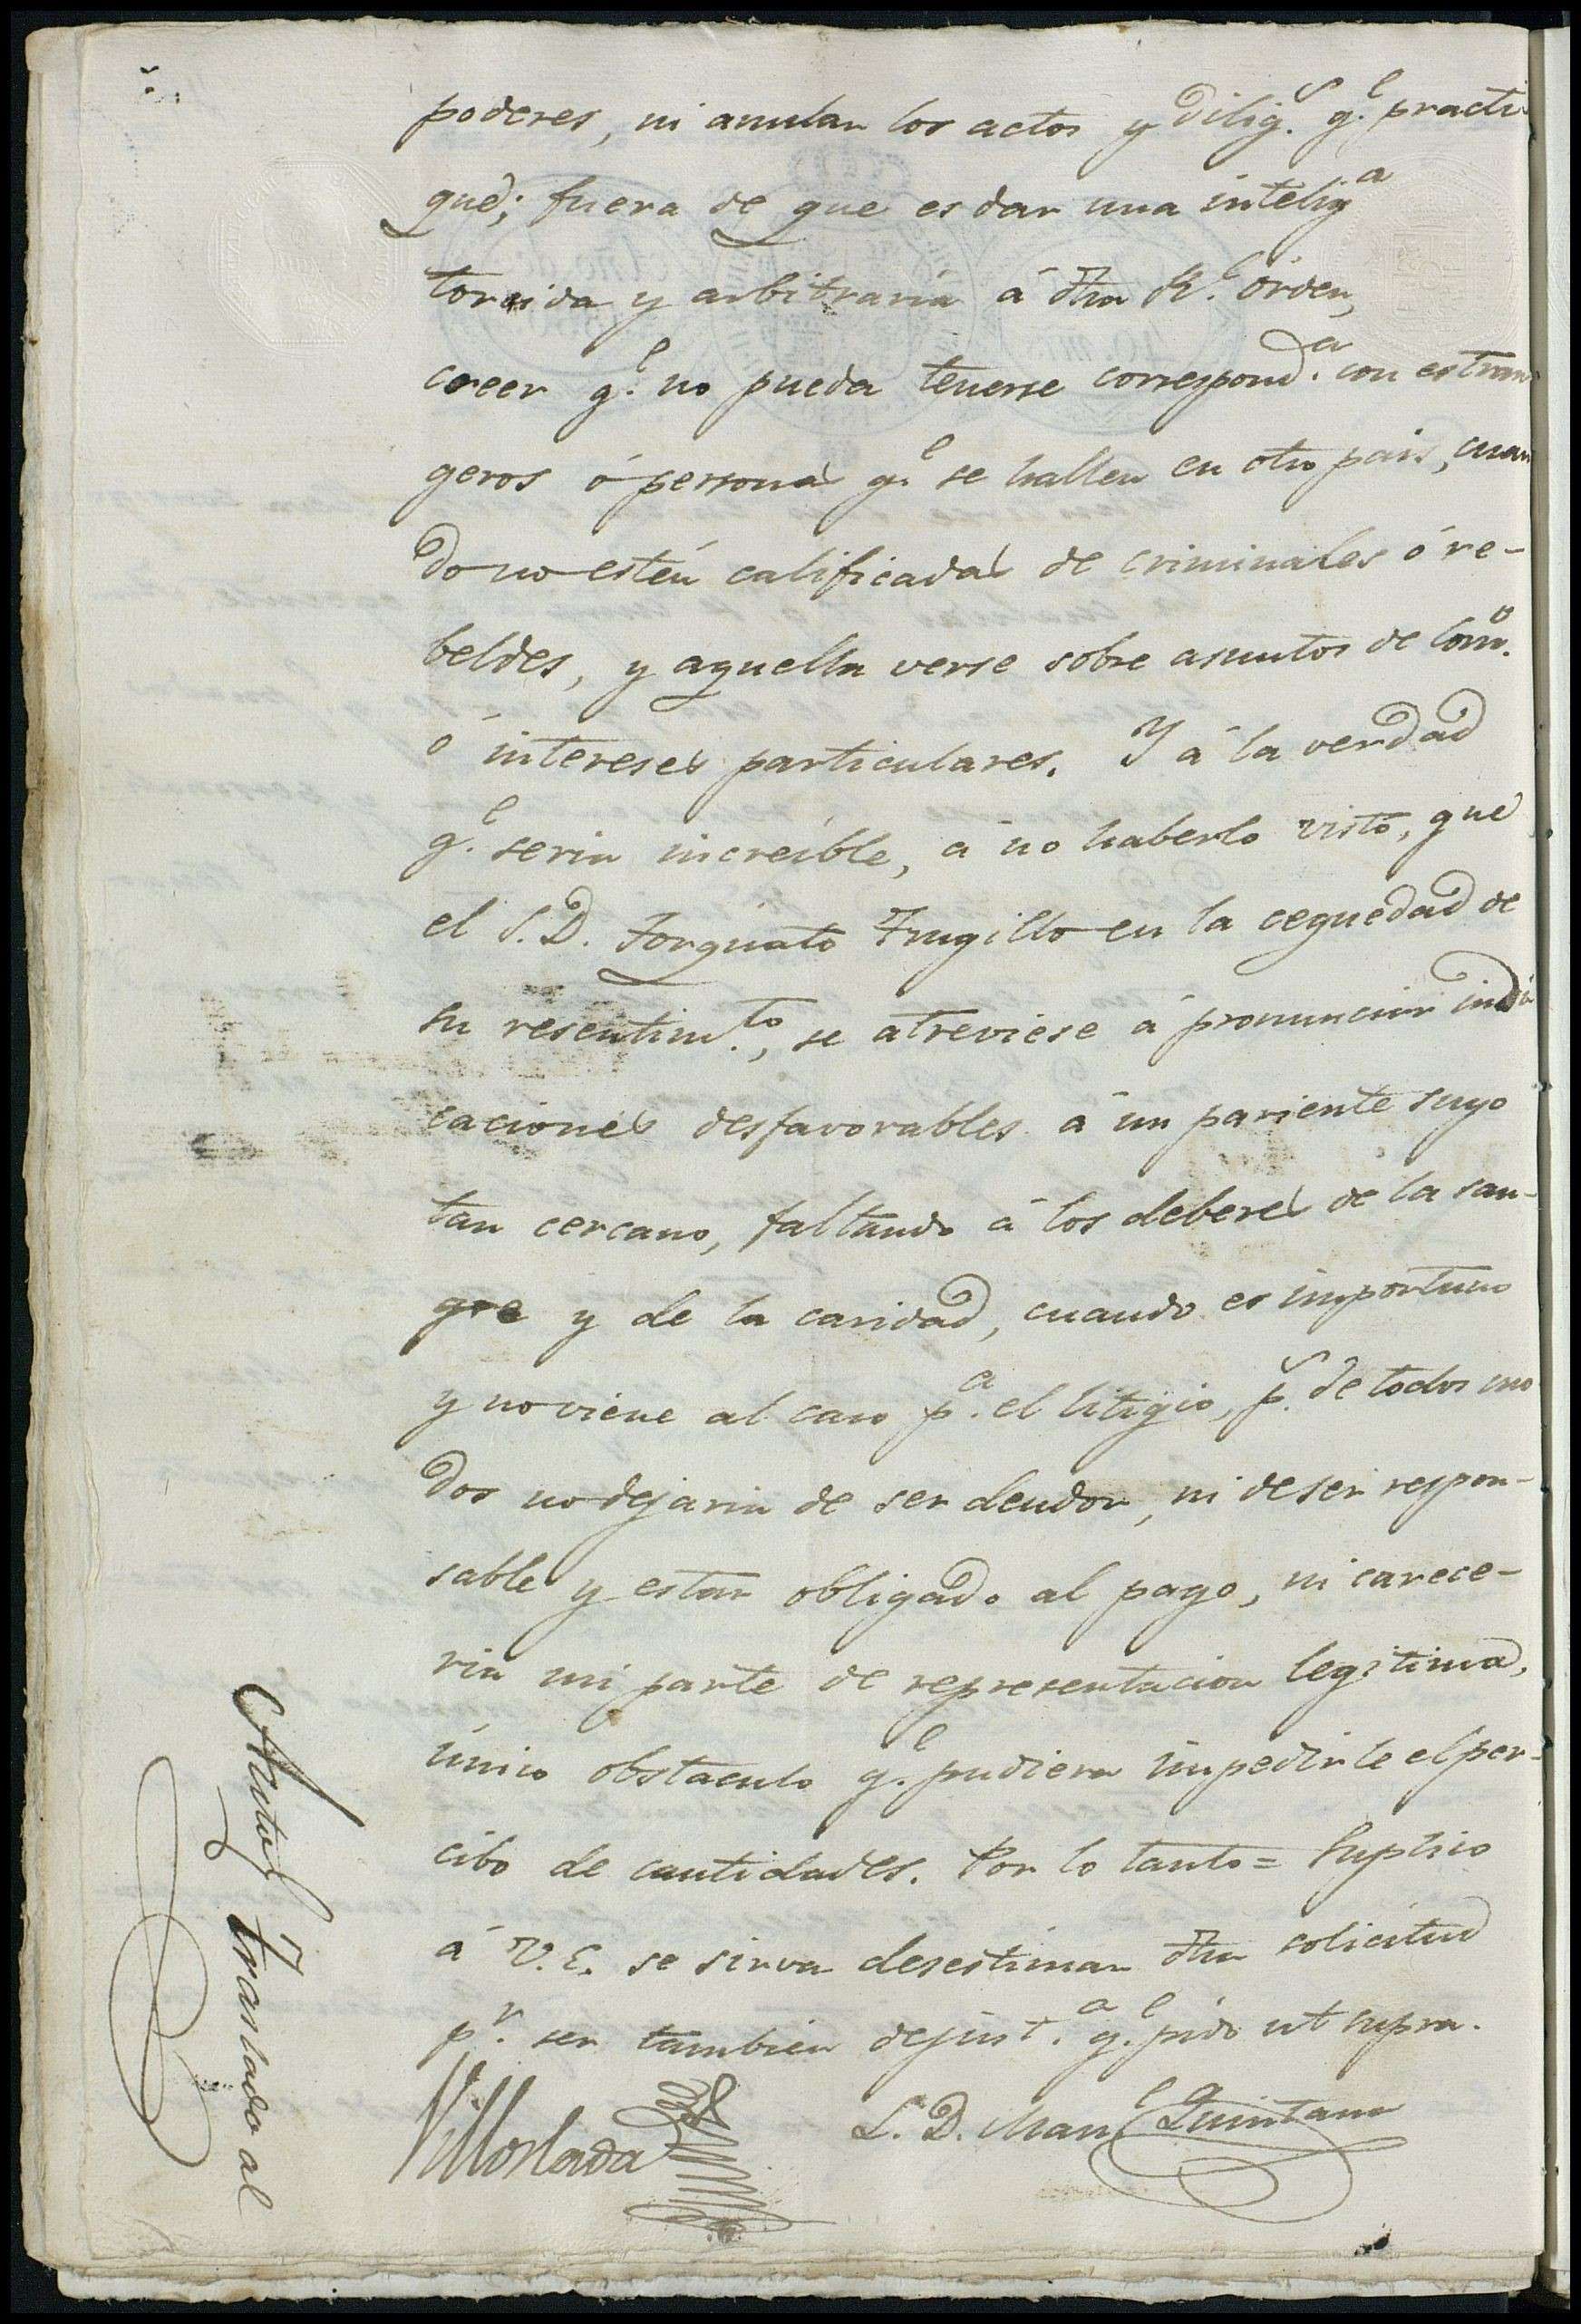 poderes, ni anular los actos y dilig.s q.e practi
que; fuera de que es dar una intelig.a
torcida y arbitraria á dha R.l órden,
creer q.e no pueda tenerse correspond.a con estran
geros ó personas q.e se hallen en otro pais, cuan
do no estén calificadas de criminales ó re-
beldes, y aquella verse sobre asuntos de com.o
ó intereses particulares. Y á la verdad
q.e seria increíble, á no haberlo visto, que
el S.D. Torquato Trugillo en la ceguedad de
su resentim.to, se atreviese á pronunciar indi
caciones desfavorables á un pariente suyo
tan cercano, faltando á los deberes de la san-
gre y de la caridad, cuando es importuno
y no viene al caso p.a el litigio, p.s de todos mo
dos no dejaria de ser deudor, ni de ser respon-
sable y estar obligado al pago, ni carece-
ria mi parte de representacion legitima,
único obstaculo q.e pudiera impedirle el per-
cibo de cantidades. Por lo tanto = Suplico
á V.E. se sirva desestimar dha solicitud
p.r ser tambien de just.a q.e pido ut supra.
Villoslada
L. D. Man.l Quintana
Auto Traslado al